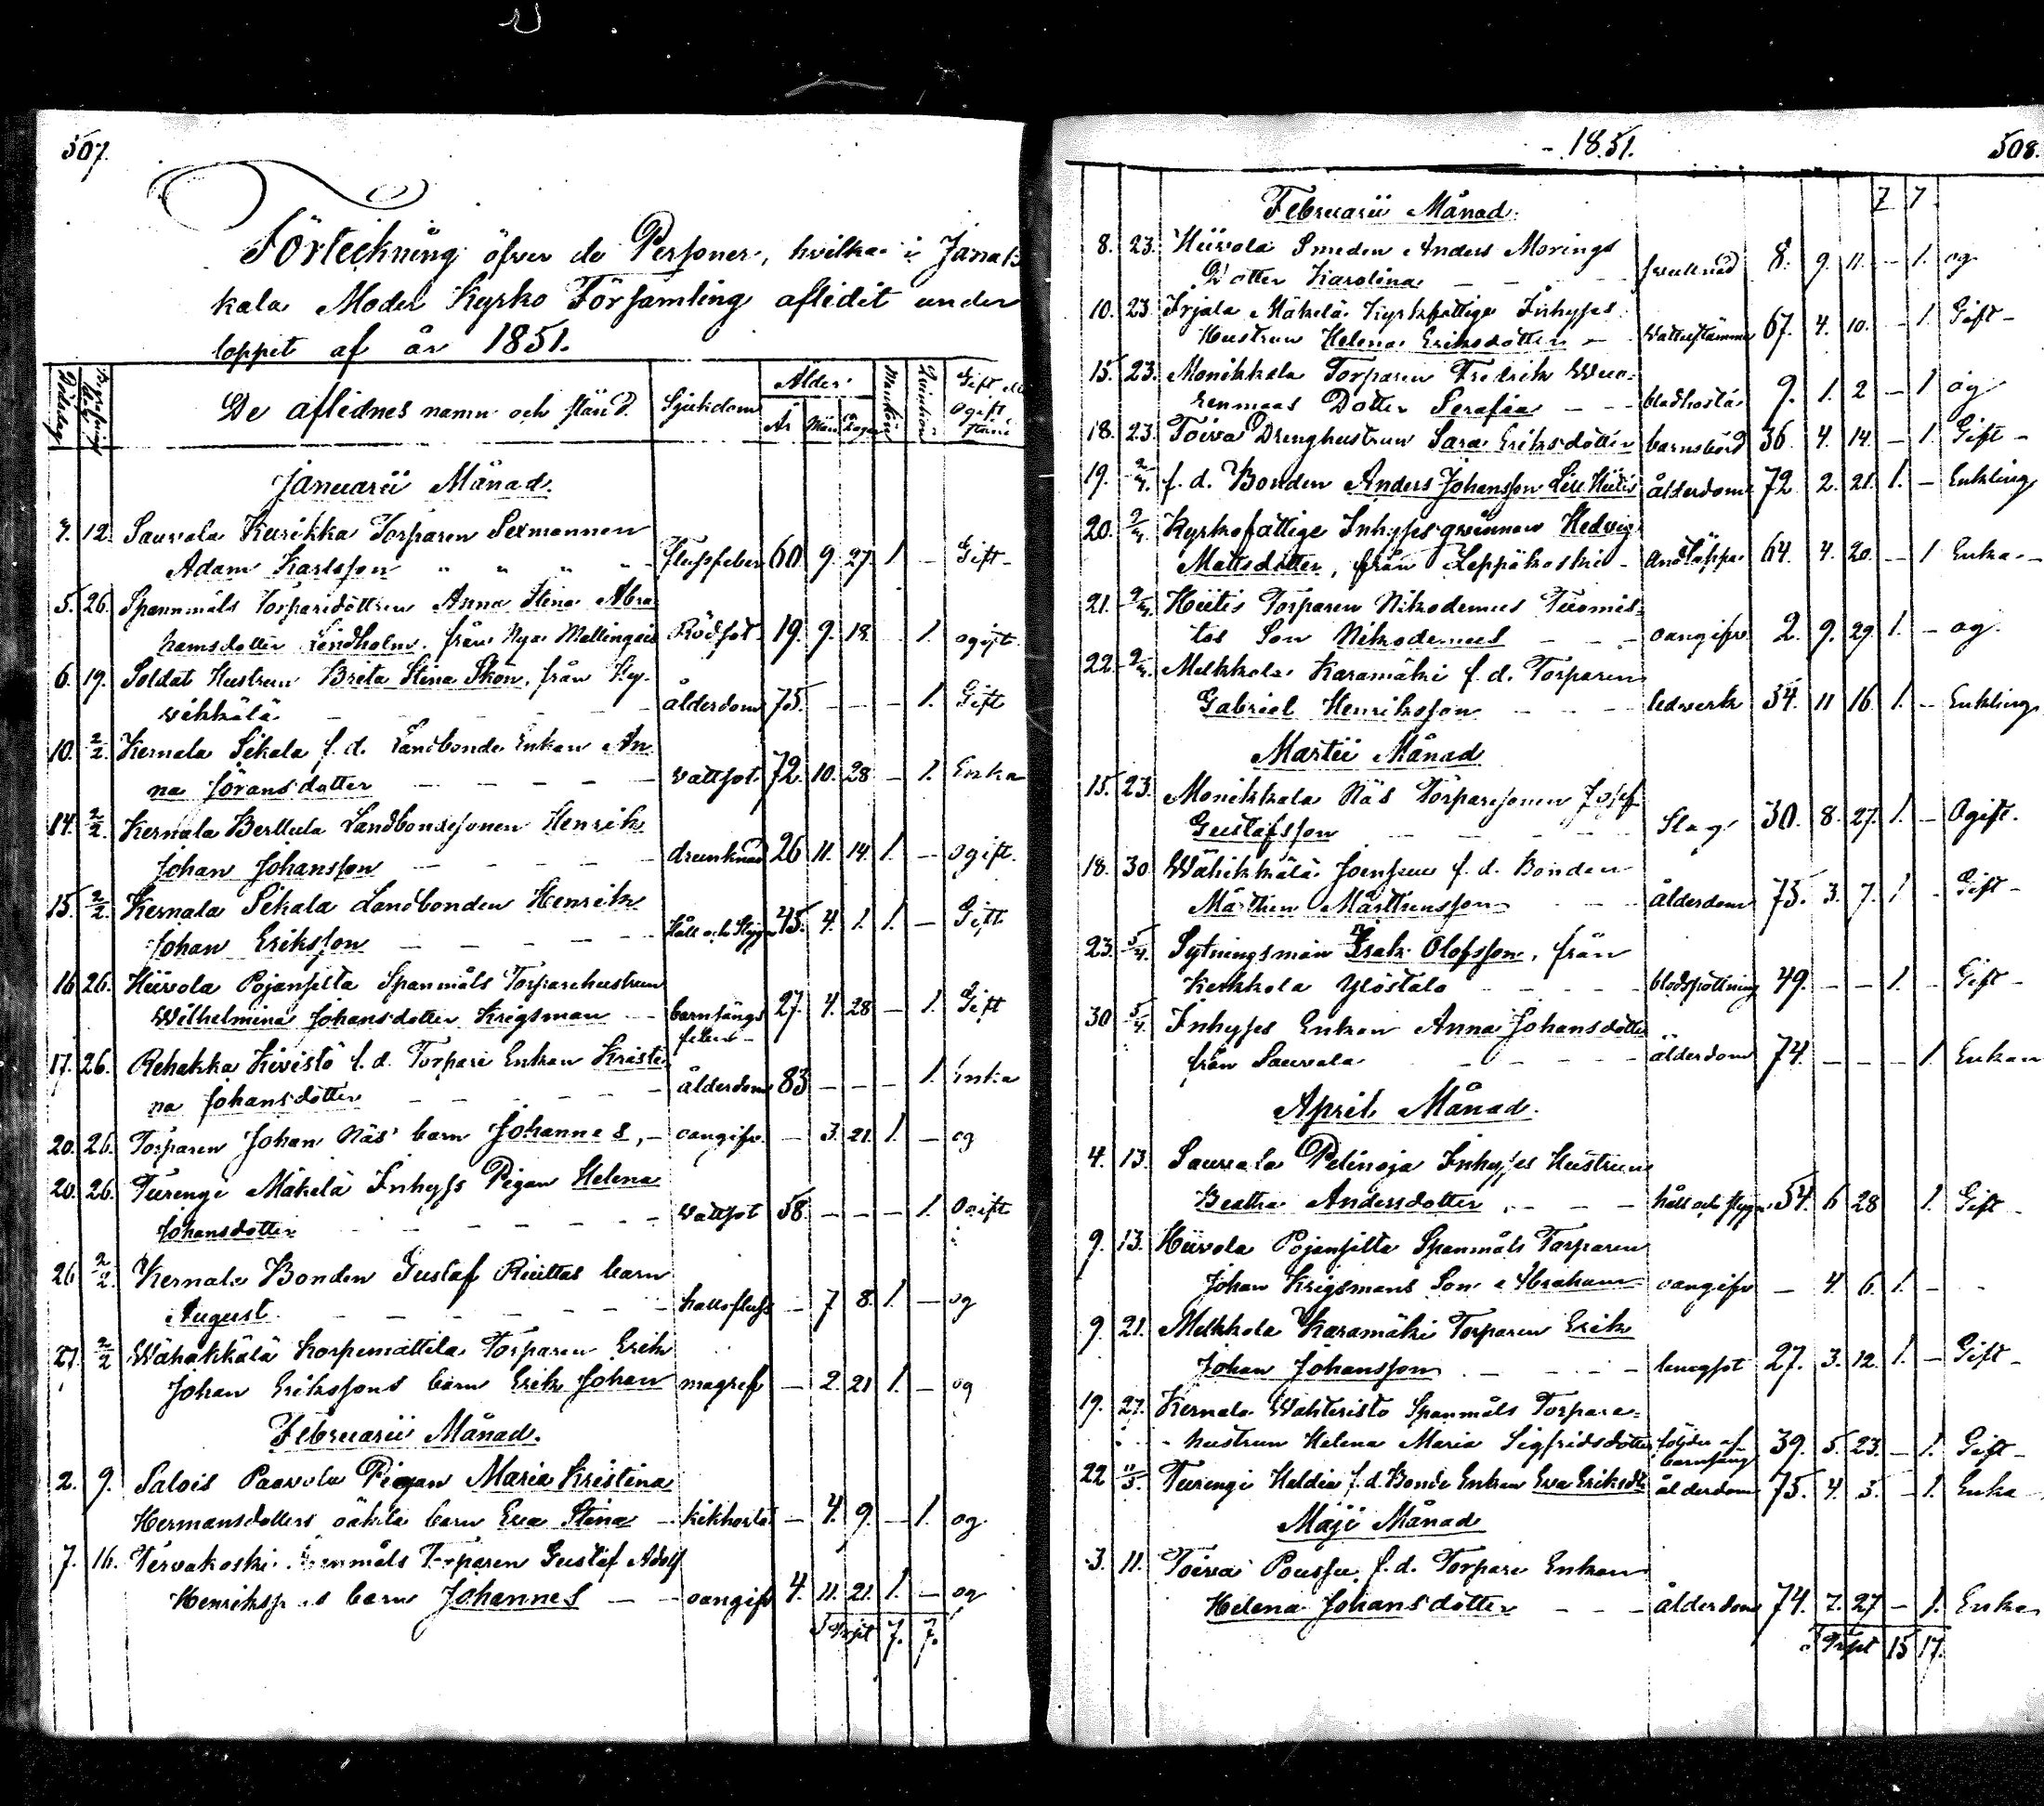 507.
Förteckning öfver de Personer, hvilka i Janak
kala Moder Kyrko Församling aflidit under
loppet af år 1851.
Dödsdag Begrafning De aflidnes namn och stånd. Sjukdom Ålder År Mån Dagar Mankön Quinkön Gift Ogift
Januarii Månad.
7. 12. Sauvala Kurikka Torparen Sexmannen
Adam Karlsson " " " " Flussfeber 60 9. 27. 1. - Gift-
5. 26. Spannmåls Torparedottren Anna Stina Abra
hamsdotter Lindholm, från Nya Mallingais Rödsot 19. 9. 18. 1. ogift.
6. 19. Soldat Hustrun Brita Stina Skön, från Hy-
vikkälä ålderdom 75. - - - 1. Gift
10. 2/2. Kernala Sikala f.d. Landbonde Enkan An
na Göransdotter wattsot. 72. 10. 28 - 1. Enka
14. 2/2. Kernala Berttula Landbondesonen Henrik
Johan Johansson drunknad 26 11. 14. 1. - ogift.
15. 2/2. Kernala Sikala Landbonden Henrik
Johan Eriksson Håll och Stygn 45. 4. 1. 1. - Gift
16 26. Hiivola Pojansilta Spanmåls Torparehustrun
Wilhelmina Johansdotter Krigsman barnsängs 27. 4. 28 - 1. Gift
feber-
17. 26. Rehakka Kivistö f.d. Torpare Enkan Kristi
na Johansdotter ålderdom 83 - - - 1. Enka
20. 26. Torparen Johan Näs' barn Johannes, - oangifv. - 3. 21. 1. - og
20. 26. Turengi Mäkelä Inhyss Pigan Helena
Johansdotter wattsot 58. - - - 1. Ogift
26 2/2. Kernala Bonden Gustaf Riuttas barn
August halsfluss - 7 8. 1. - og
27. 2/2 Wähäkkälä Korpimattila Torparen Erik
Johan Erikssons barn Erik Johan magref - 2. 21 1. - og
Februarii Månad.
2. 9. Salois Paavola Pigan Maria Kristina
Hermansdotters oäkta barn Eva Stina - kikhosta - 4. 9. - 1. og.
7. 16. Tervakoski Spenmåls Torparen Gustaf Adolf
Henrikssons barn Johannes - - oangifv 4. 11. 21. 1. - og
Trspt 7. 7.
- 1851. 508.
7 7.
Februarii Månad.
8. 23. Hiivola Smeden Anders Morings
Dotter Karolina 8. 9. 11. - 1. og
10. 23 Irjala Mäkelä Kyrkofattige Inhyses
Hustrun Helena Eriksdotter - 67. 4. 10. - 1. Gift-
15. 23. Monikkala Torparen Fredrik Wuo-
renmaas Dotter Serafia - - bladhosta 9. 1. 2 - 1 og
18. 23. Toiva Drenghustrun Sara Eriksdotter barnsbörd 36 4. 14. - 1. Gift-
19. 2/3. f.d. Bonden Anders Johansson Lill Hiitis ålderdom 72 2. 21. 1. - Enkling
20. 2/3. Kyrkofattige Inhysesqvinnan Hedvig
Mattsdotter, från Leppäkoski - andtäppa 64. 4. 20. - 1 Enka-
21. 2/3. Hiitis Torparen Nikodemus Tuomis-
tos Son Nikodemus - - - oangifv. 2. 9. 29. 1. - og.
22. 2/3. Melkkola Karamäki f.d. Torparen
Gabriel Henriksson - - - ledverk 54. 11 16 1. - Enkling
Martii Månad
15. 23. Monikkala Näs Torparesonen Josef
Gustafsson Slag 30. 8. 27. 1. - Ogift.
18. 30 Wähikkälä Joensuu f.d. Bonden
Mårthen Mårthensson - - ålderdom 75. 3. 7. 1 - Gift-
23. 5/4. Sytningsman Isak Olofsson, från
Kerkkola Ylöstalo blodspottning 49. - - 1. - Gift-
30 5/4. Inhyses Enkan Anna Johansdotter
från Sauvala ålderdom 74. - - - 1. Enkan
April Månad.
4. 13. Sauvala Pelinoja Inhyses Hustrun
Beatha Andersdotter - - - håll och stygn 54. 6 28 1. Gift-
9. 13. Hiivola Pojansilta Spanmåls Torparen
Johan Krigsmans Son Abraham oangifv - 4 6. 1. - -
9. 21. Melkkola Karamäki Torparen Erik
Johan Johansson - - lungsot 27. 3. 12. 1. - Gift-
19. 27. Kernala Wahteristo Spanmåls Torpare-
hustrun Helena Maria Sigfridsdotter följder af barnsäng 39. 5. 23. - 1. Gift-
22 11/5. Turengi Heldia f.d. Bonde Enkan Eva Eriksdtr ålderdom 75. 4. 5. - 1. Enka
Maji Månad
3. 11. Toiva Poussu f.d. Torpare Enkan
Helena Johansdotter - - - ålderdom 74. 7. 27 - 1. Enka
Trspt 15 17.